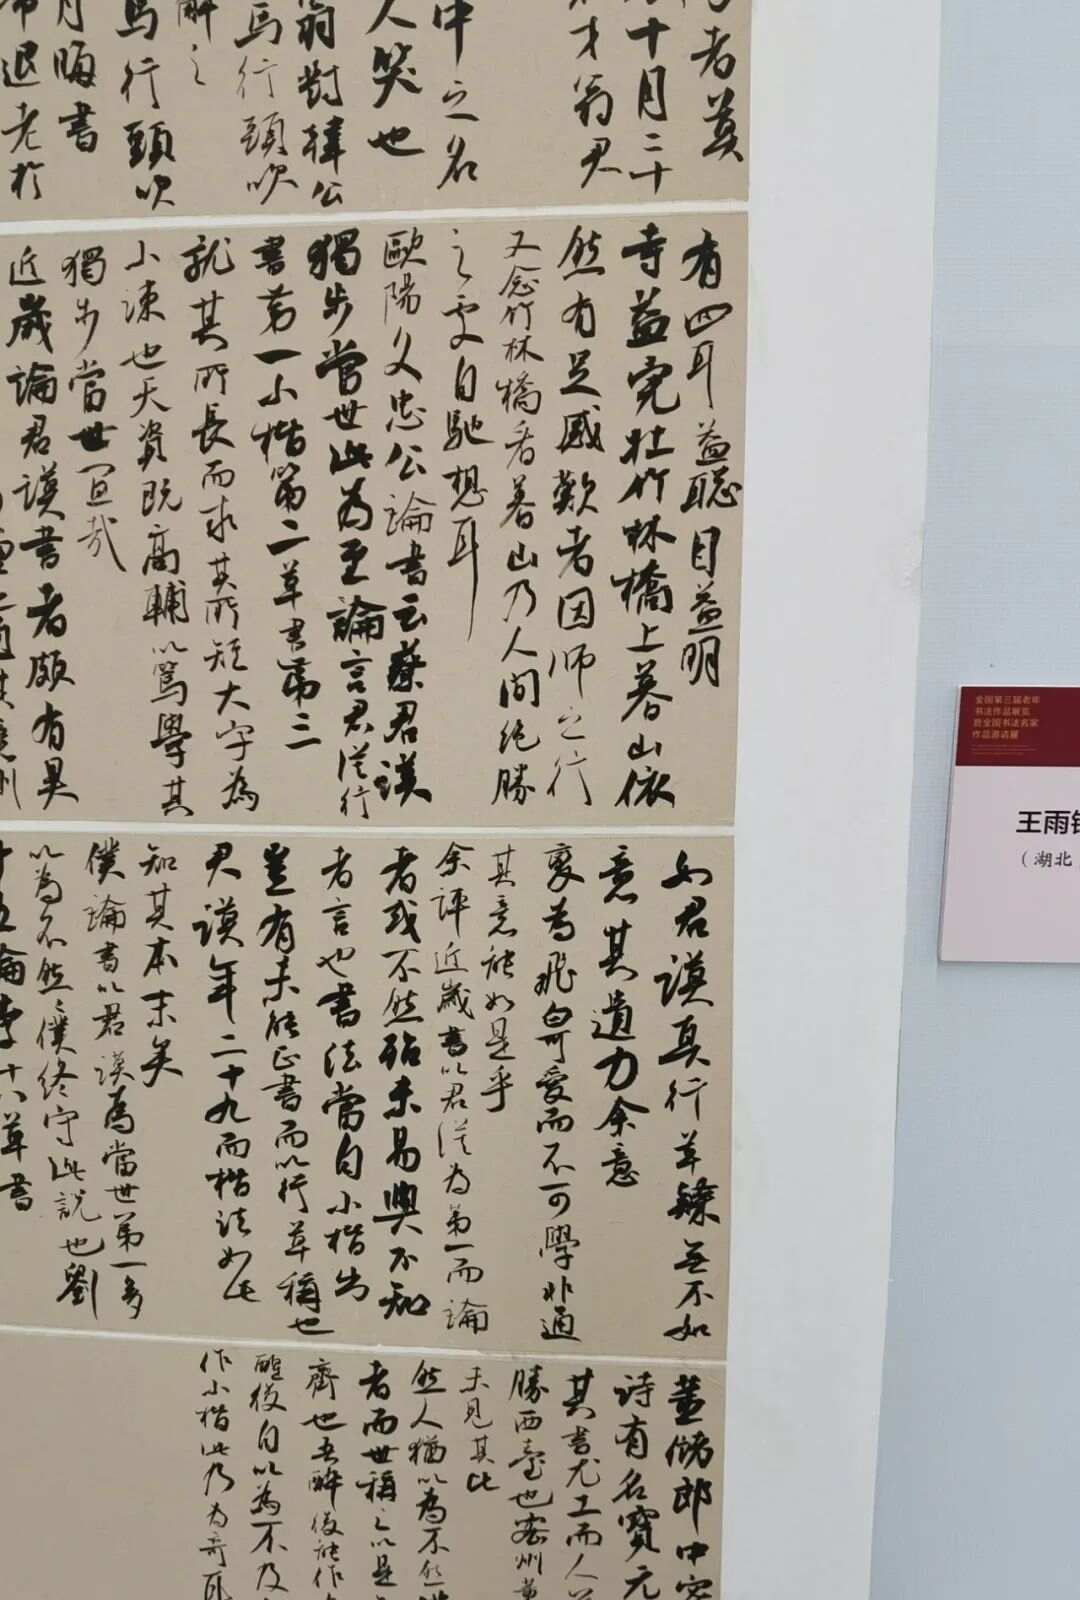 者莫
十月三十
才翁君
中之名
人笑也
翁對韓公
馬行頭吹
解之
馬行頭吹
月晦書
帝退老於
有四耳益聪目益明
寺益完壮竹林橋上暮山依
然有足感歎者因師之行
又念竹林橋看暮山乃人間絶勝
之處自馳想耳
歐陽文忠公論書云蔡君謨
獨步當世此為至論言君謨行
書第一小楷第二草書第三
就其所長而求其所短大字為
小疎也天資既高輔以篤學其
獨步當世宜哉
近歲論君謨書者頗有異
如君謨真行草隸無不如
意其遺力余意
變為飛白可愛而不可學非通
其意能如是乎
余評近歲書以君謨為第一而論
者或不然殆未易與不知
者言也書法當自小楷出
豈有未能正書而以行草稱也
君謨年二十九而楷法如此
知其本末矣
僕論書以君謨為當世第一多
以為不然然僕終守此說也劉
十八草書
董儲郎中密
詩有名寶元
其書尤工而人
勝西臺也密州董
未見其比
然人猶以為不然
者而世稱之以是
齊也吾醉後能作
醒後自以為不及
作小楷此乃为奇耳
全国第三届老年
书法作品展览
暨全国书法名家
作品邀请展
王雨
（湖北